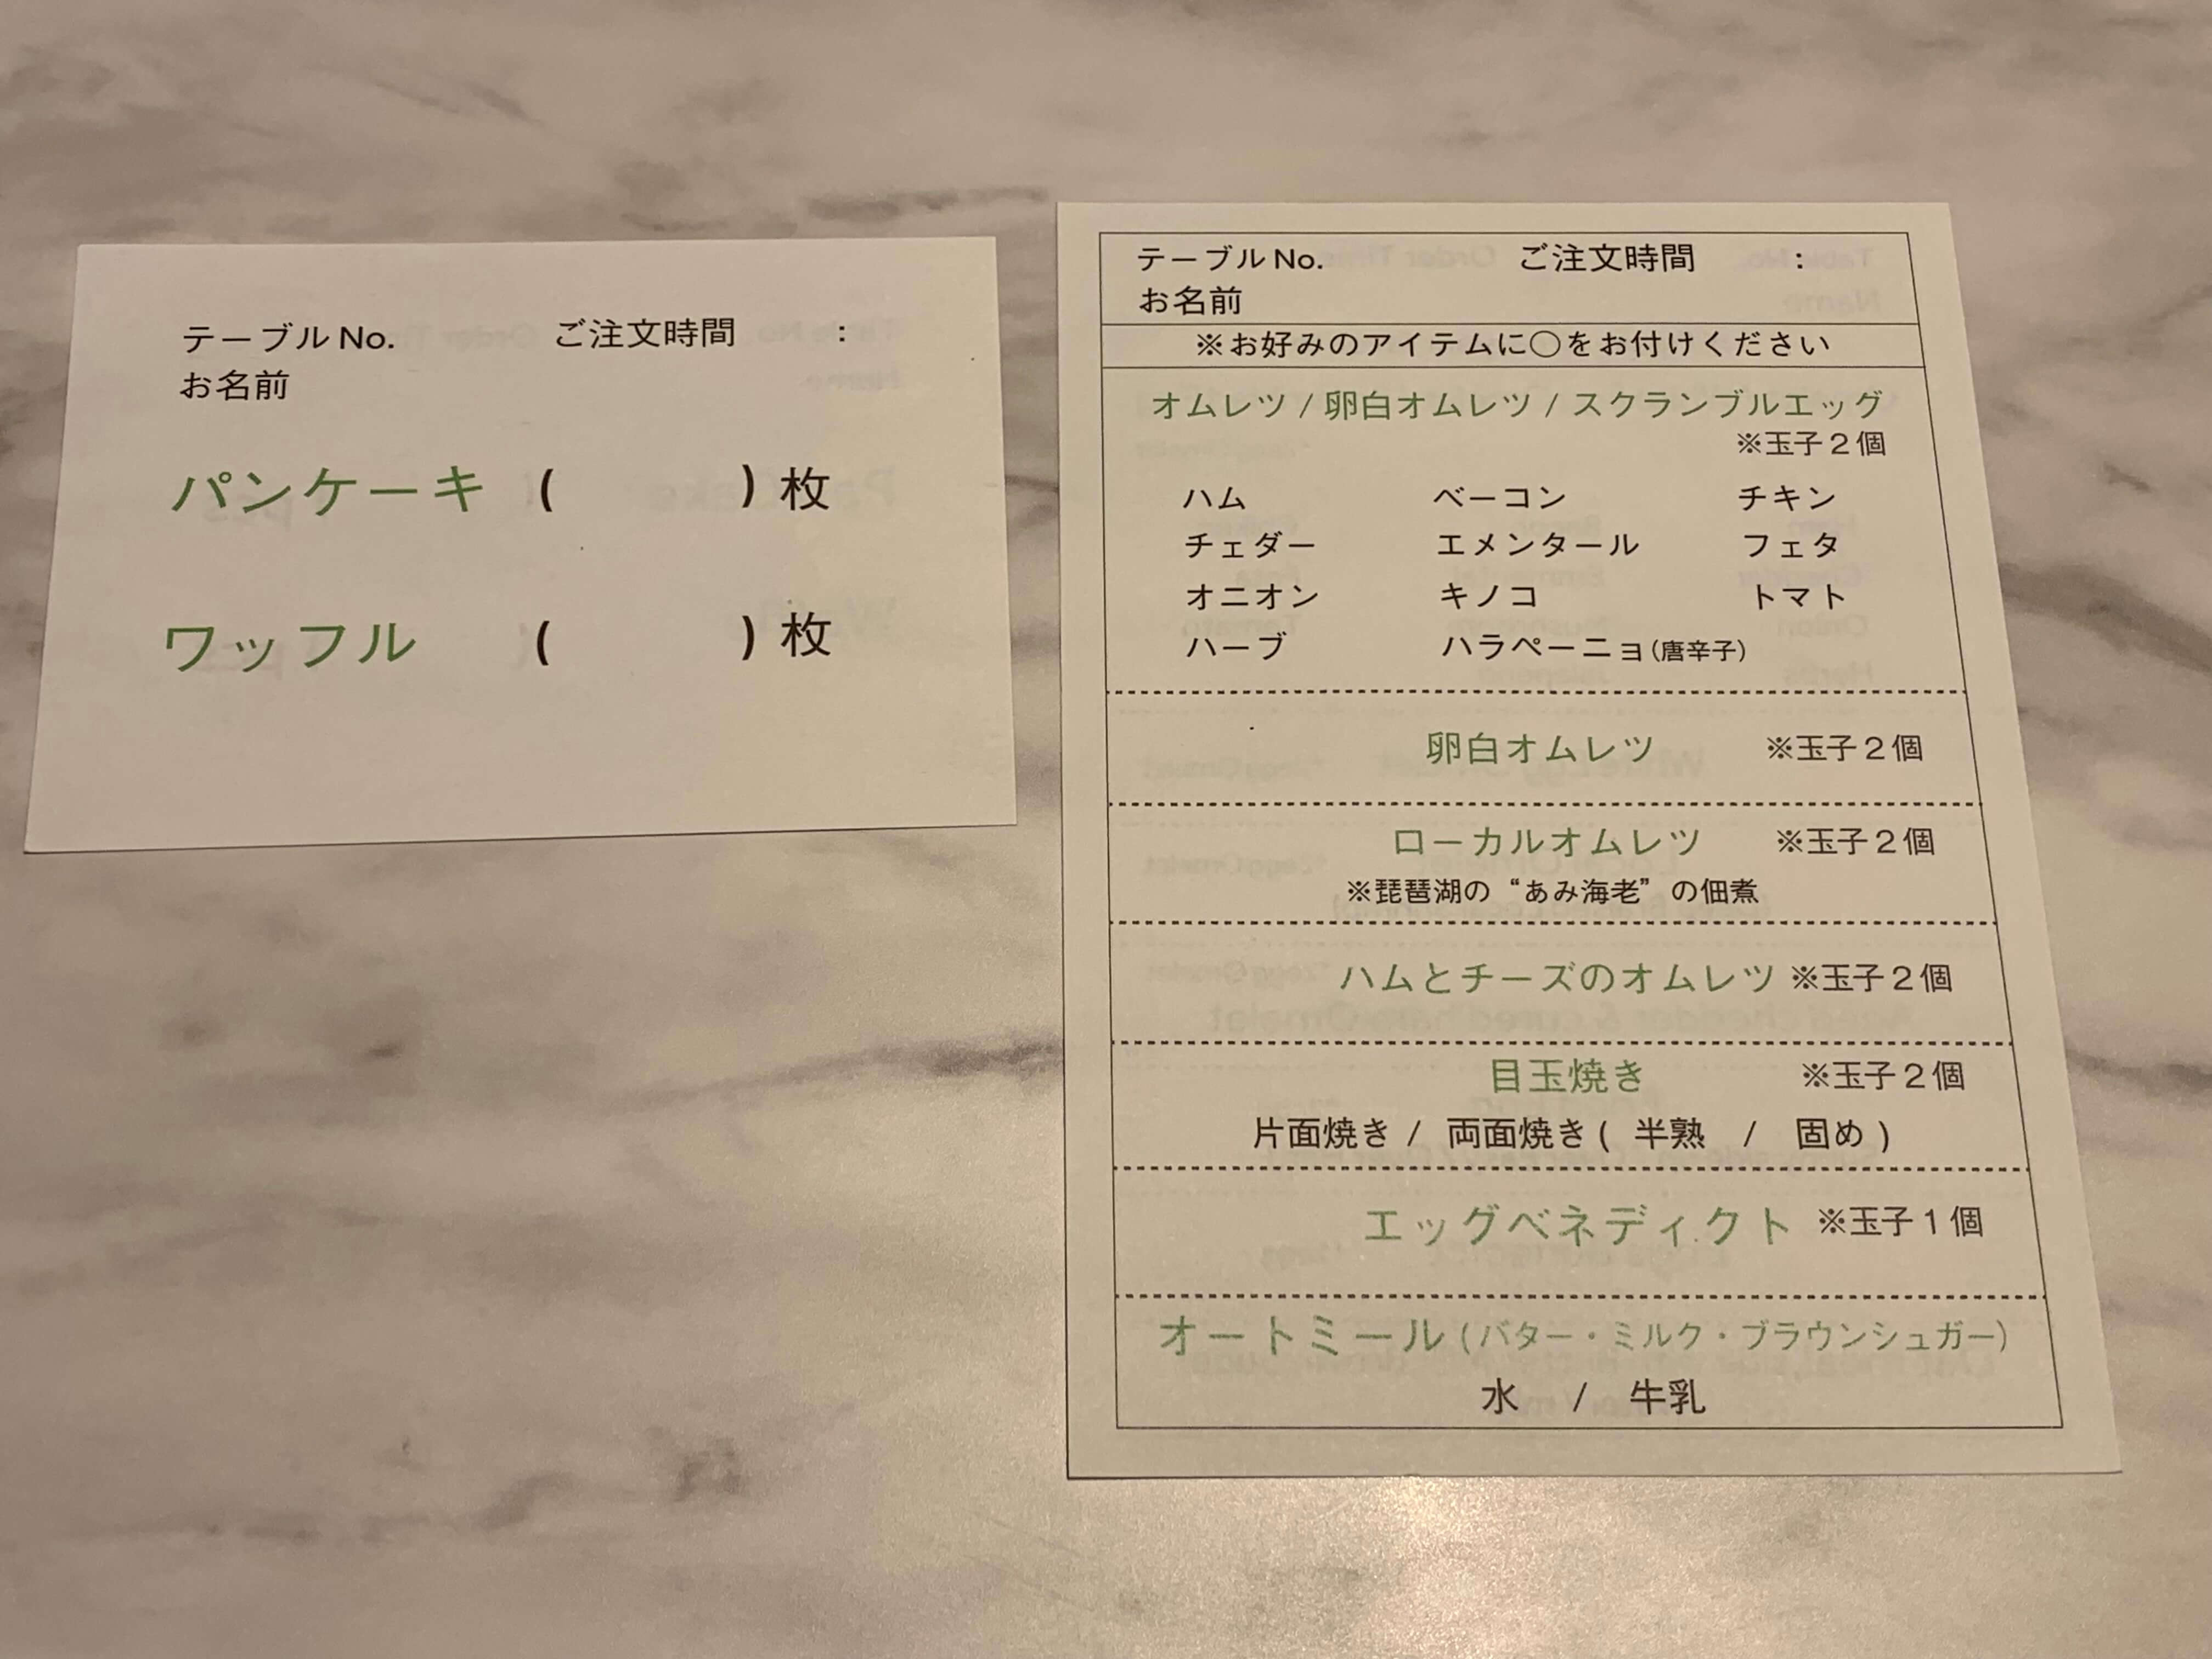 テーブル No. ご注文時間 :
お名前
パンケーキ ( ) 枚
ワッフル ( ) 枚
テーブル No. ご注文時間 :
お名前
※お好みのアイテムに○をお付けください
オムレツ / 卵白オムレツ / スクランブルエッグ
※玉子２個
ハム ベーコン チキン
チェダー エメンタール フェタ
オニオン キノコ トマト
ハーブ ハラペーニョ(唐辛子)
卵白オムレツ ※玉子２個
ローカルオムレツ ※玉子２個
※琵琶湖の“あみ海老”の佃煮
ハムとチーズのオムレツ ※玉子２個
目玉焼き ※玉子２個
片面焼き / 両面焼き ( 半熟 / 固め )
エッグベネディクト ※玉子１個
オートミール (バター・ミルク・ブラウンシュガー)
水 / 牛乳